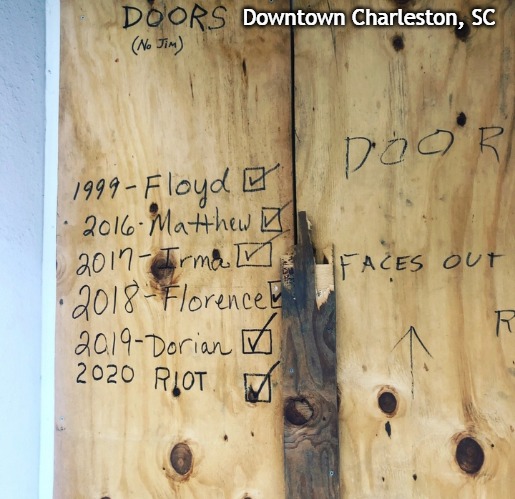 Downtown Charleston, SC
DOORS
(No Jim)
DOOR
1999-Floyd
2016-Matthew
2017-Irma
2018-Florence
2019-Dorian
2020 RIOT
FACES OUT
R